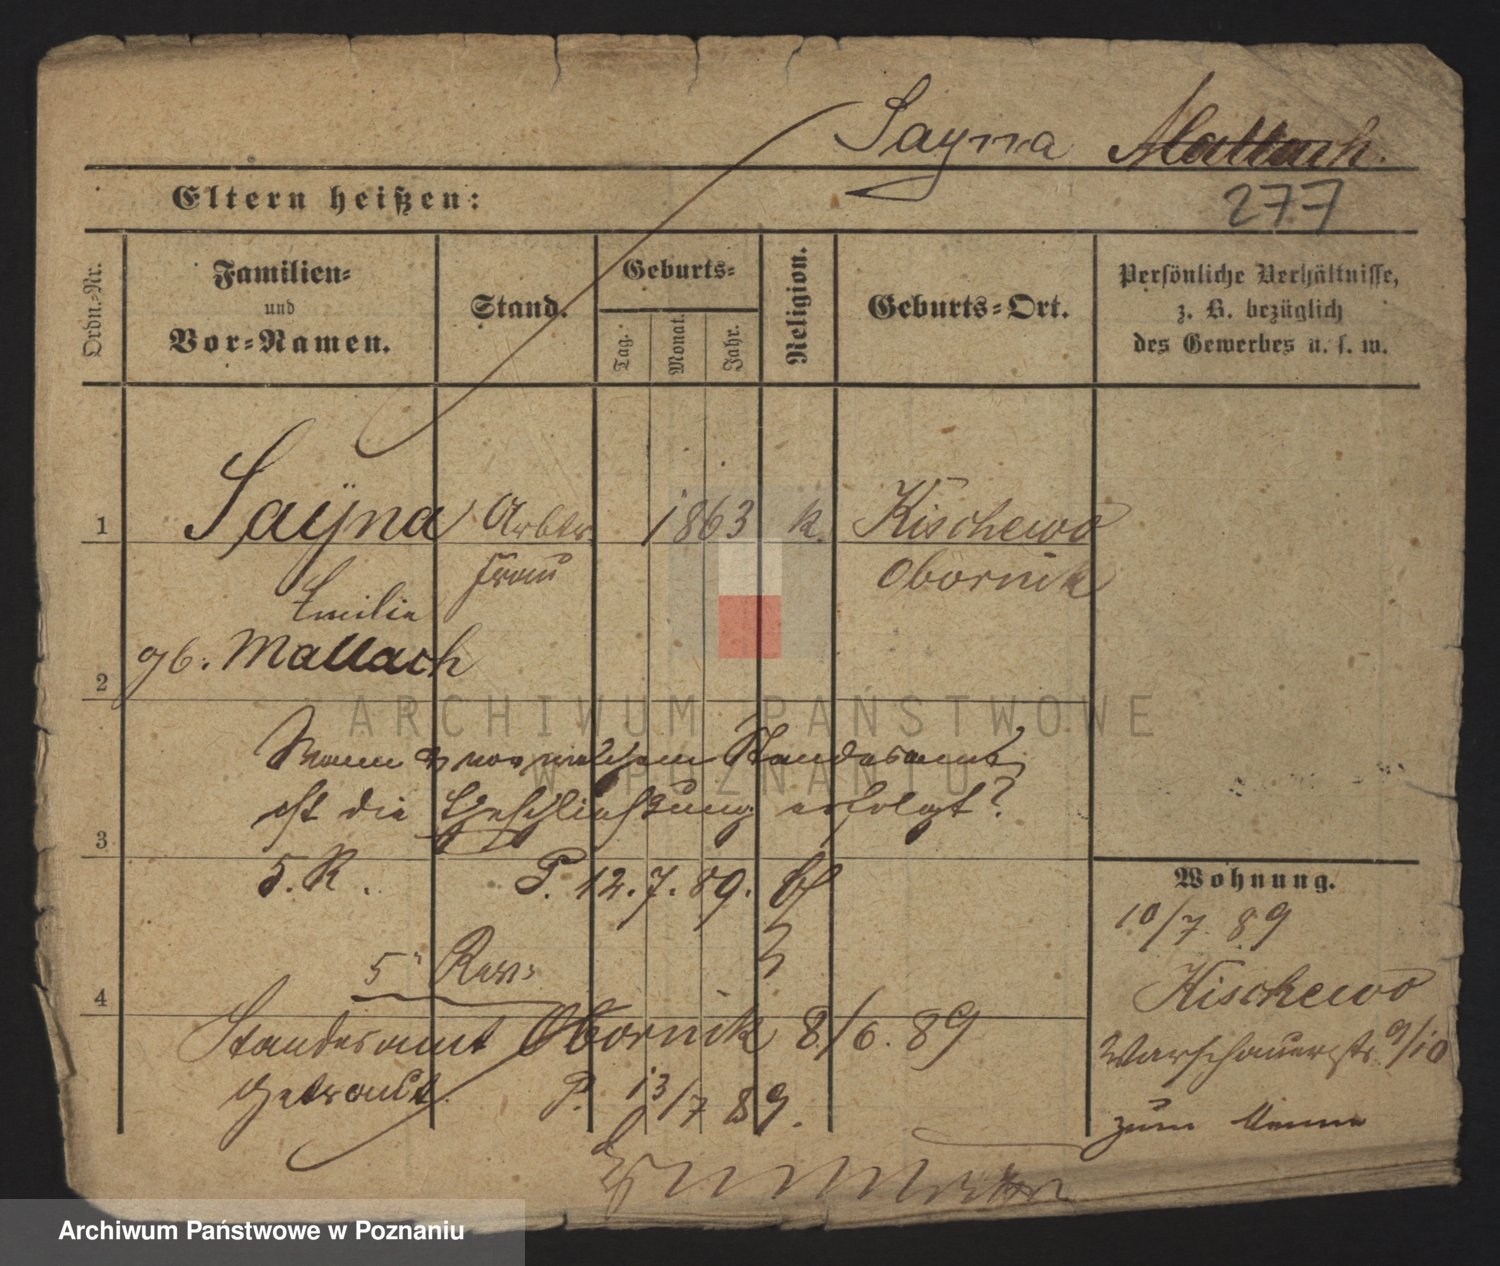 Sayna Mallach.
277
Eltern heißen:
Ordn.-Nr.
Familien-
und
Vor-Namen.
Stand.
Geburts-
Tag.
Monat.
Jahr.
Religion.
Geburts-Ort.
Persönliche Verhältnisse,
z. B. bezüglich
des Gewerbes u. s. w.
1 Saÿna Arbtr. 1863 k. Kischewo
frau Obornik
Emilie
gb. Mallach
2
Wann & vor welchem Standesamt
ist die Eheschließung erfolgt?
3
5. R. P. 12.7.89.
5" Rev:
4
Standesamt Obornik 8/6.89
getraut. P. 13/7 89.
Wohnung.
10/7 89
Kischewo
Warschauerstr. 9/10
zum Manne
ARCHIWUM PAŃSTWOWE
W POZNANIU
Archiwum Państwowe w Poznaniu